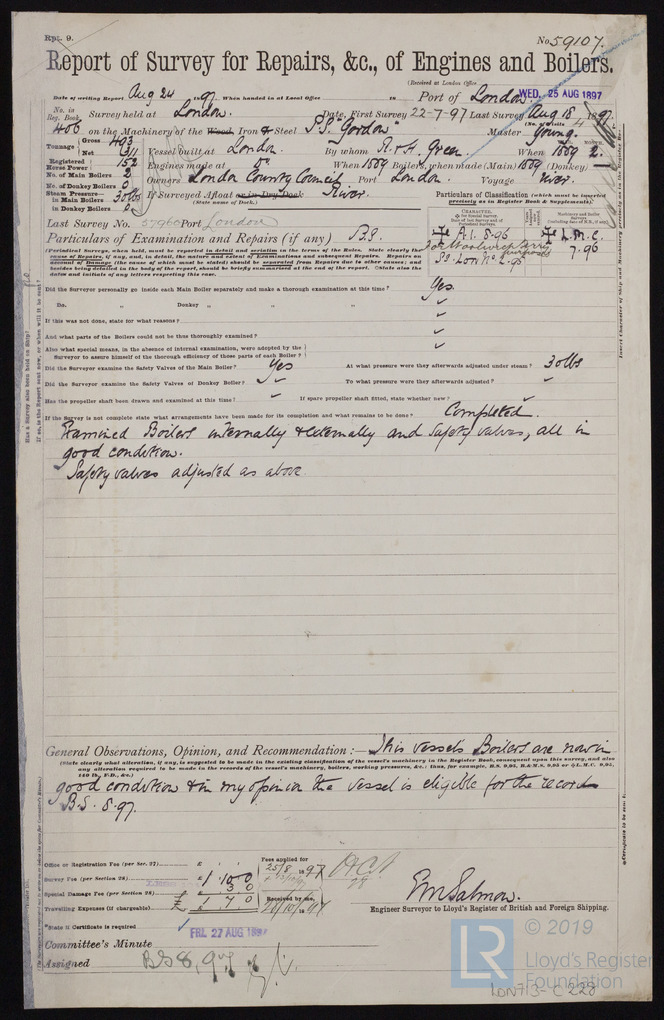 Rpt. 9.
No. 59107.
Report of Survey for Repairs, &c., of Engines and Boilers.
(Received at London Office
WED. 25 AUG 1897
Date of writing Report Aug 24 1897 When handed in at Local Office 18 Port of London.
No. in Reg. Book 406 Survey held at London. Date, First Survey 22-7-97 Last Survey Aug 18 1897
(No. of Visits 4)
on the Machinery of the Wood, Iron & Steel S.S. "Gordon" Master Young.
Tonnage Gross 493 Net 311 Vessel built at London By whom R & H. Green. When 1889 2.
Registered Horse Power 152 Engines made at Do. When 1889 Boilers, when made (Main) 1889 (Donkey)
No. of Main Boilers 2
No. of Donkey Boilers 0 Owners London County Council Port London. Voyage River.
Steam Pressure—
in Main Boilers 30 lbs If Surveyed Afloat or in Dry Dock River
(State name of Dock.)
in Donkey Boilers
Particulars of Classification (which must be inserted precisely as in Register Book & Supplements).
Last Survey No. 57960 Port London
Particulars of Examination and Repairs (if any) B.S.
CHARACTER.
Machinery and Boiler Surveys
A.1. 8-96
For Woolwich Ferry purposes
SS. Lon No. 2-96
L.M.C. 7.96
(Periodical Surveys, when held, must be reported in detail and seriatim in the terms of the Rules. State clearly the
cause of Repairs, if any, and, in detail, the nature and extent of Examinations and subsequent Repairs. Repairs on
account of Damage (the cause of which must be stated) should be separated from Repairs due to other causes; and
besides being detailed in the body of the report, should be briefly summarised at the end of the report. State also the
dates and initials of any letters respecting this case.
Did the Surveyor personally go inside each Main Boiler separately and make a thorough examination at this time? Yes.
Do. Donkey " " "
If this was not done, state for what reasons?
And what parts of the Boilers could not be thus thoroughly examined?
Also what special means, in the absence of internal examination, were adopted by the
Surveyor to assure himself of the thorough efficiency of those parts of each Boiler?
Did the Surveyor examine the Safety Valves of the Main Boiler? Yes At what pressure were they afterwards adjusted under steam? 30 lbs
Did the Surveyor examine the Safety Valves of Donkey Boiler? To what pressure were they afterwards adjusted?
Has the propeller shaft been drawn and examined at this time? If spare propeller shaft fitted, state whether new?
If the Survey is not complete state what arrangements have been made for its completion and what remains to be done? Completed.
Examined Boilers internally & externally and Safety valves, all in
good condition.
Safety valves adjusted as above
General Observations, Opinion, and Recommendation:— This vessel's Boilers are now in
(State clearly what alteration, if any, is suggested to be made in the existing classification of the vessel's machinery in the Register Book, consequent upon this survey, and also
any alteration required to be made in the records of the vessel's machinery, boilers, working pressures, &c.: thus, for example, B.S. 9.95, B.&M.S. 9.95 or L.M.C. 9.95,
140 lb., F.D., &c.)
good condition & in my opinion the vessel is eligible for the record
B.S. 8.97.
Office or Registration Fee (per Sec. 27) £
Survey Fee (per Section 28) £ 1 10 0
Special Damage Fee (per Section 28) £ 3 0
£ 1 7 0
Travelling Expenses (if chargeable) £
Fees applied for
25/8 1897
Received by me,
1897
E M Salmon.
Engineer Surveyor to Lloyd's Register of British and Foreign Shipping.
*State if Certificate is required
FRI. 27 AUG 1897
Committee's Minute
Assigned BS 8,97
© 2019
LR
Lloyd's Register
Foundation
LON713-C228